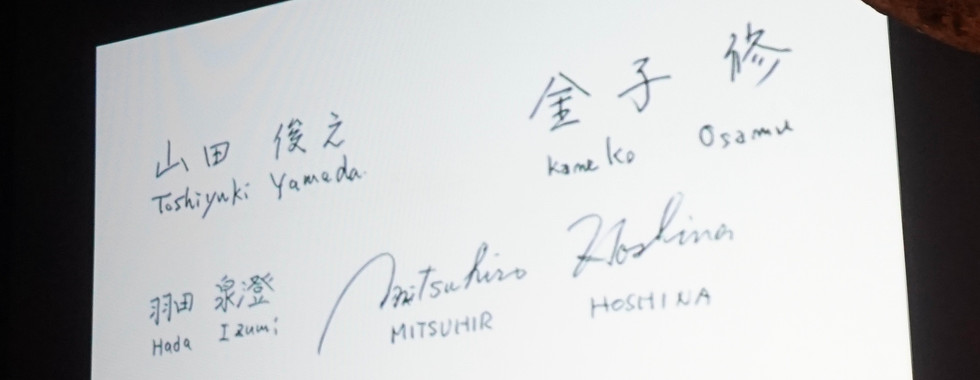 山田 俊之
Toshiyuki Yamada
金子 修
Kaneko Osamu
羽田 泉澄
Hada Izumi
Mitsuhiro Hoshina
MITSUHIR HOSHINA